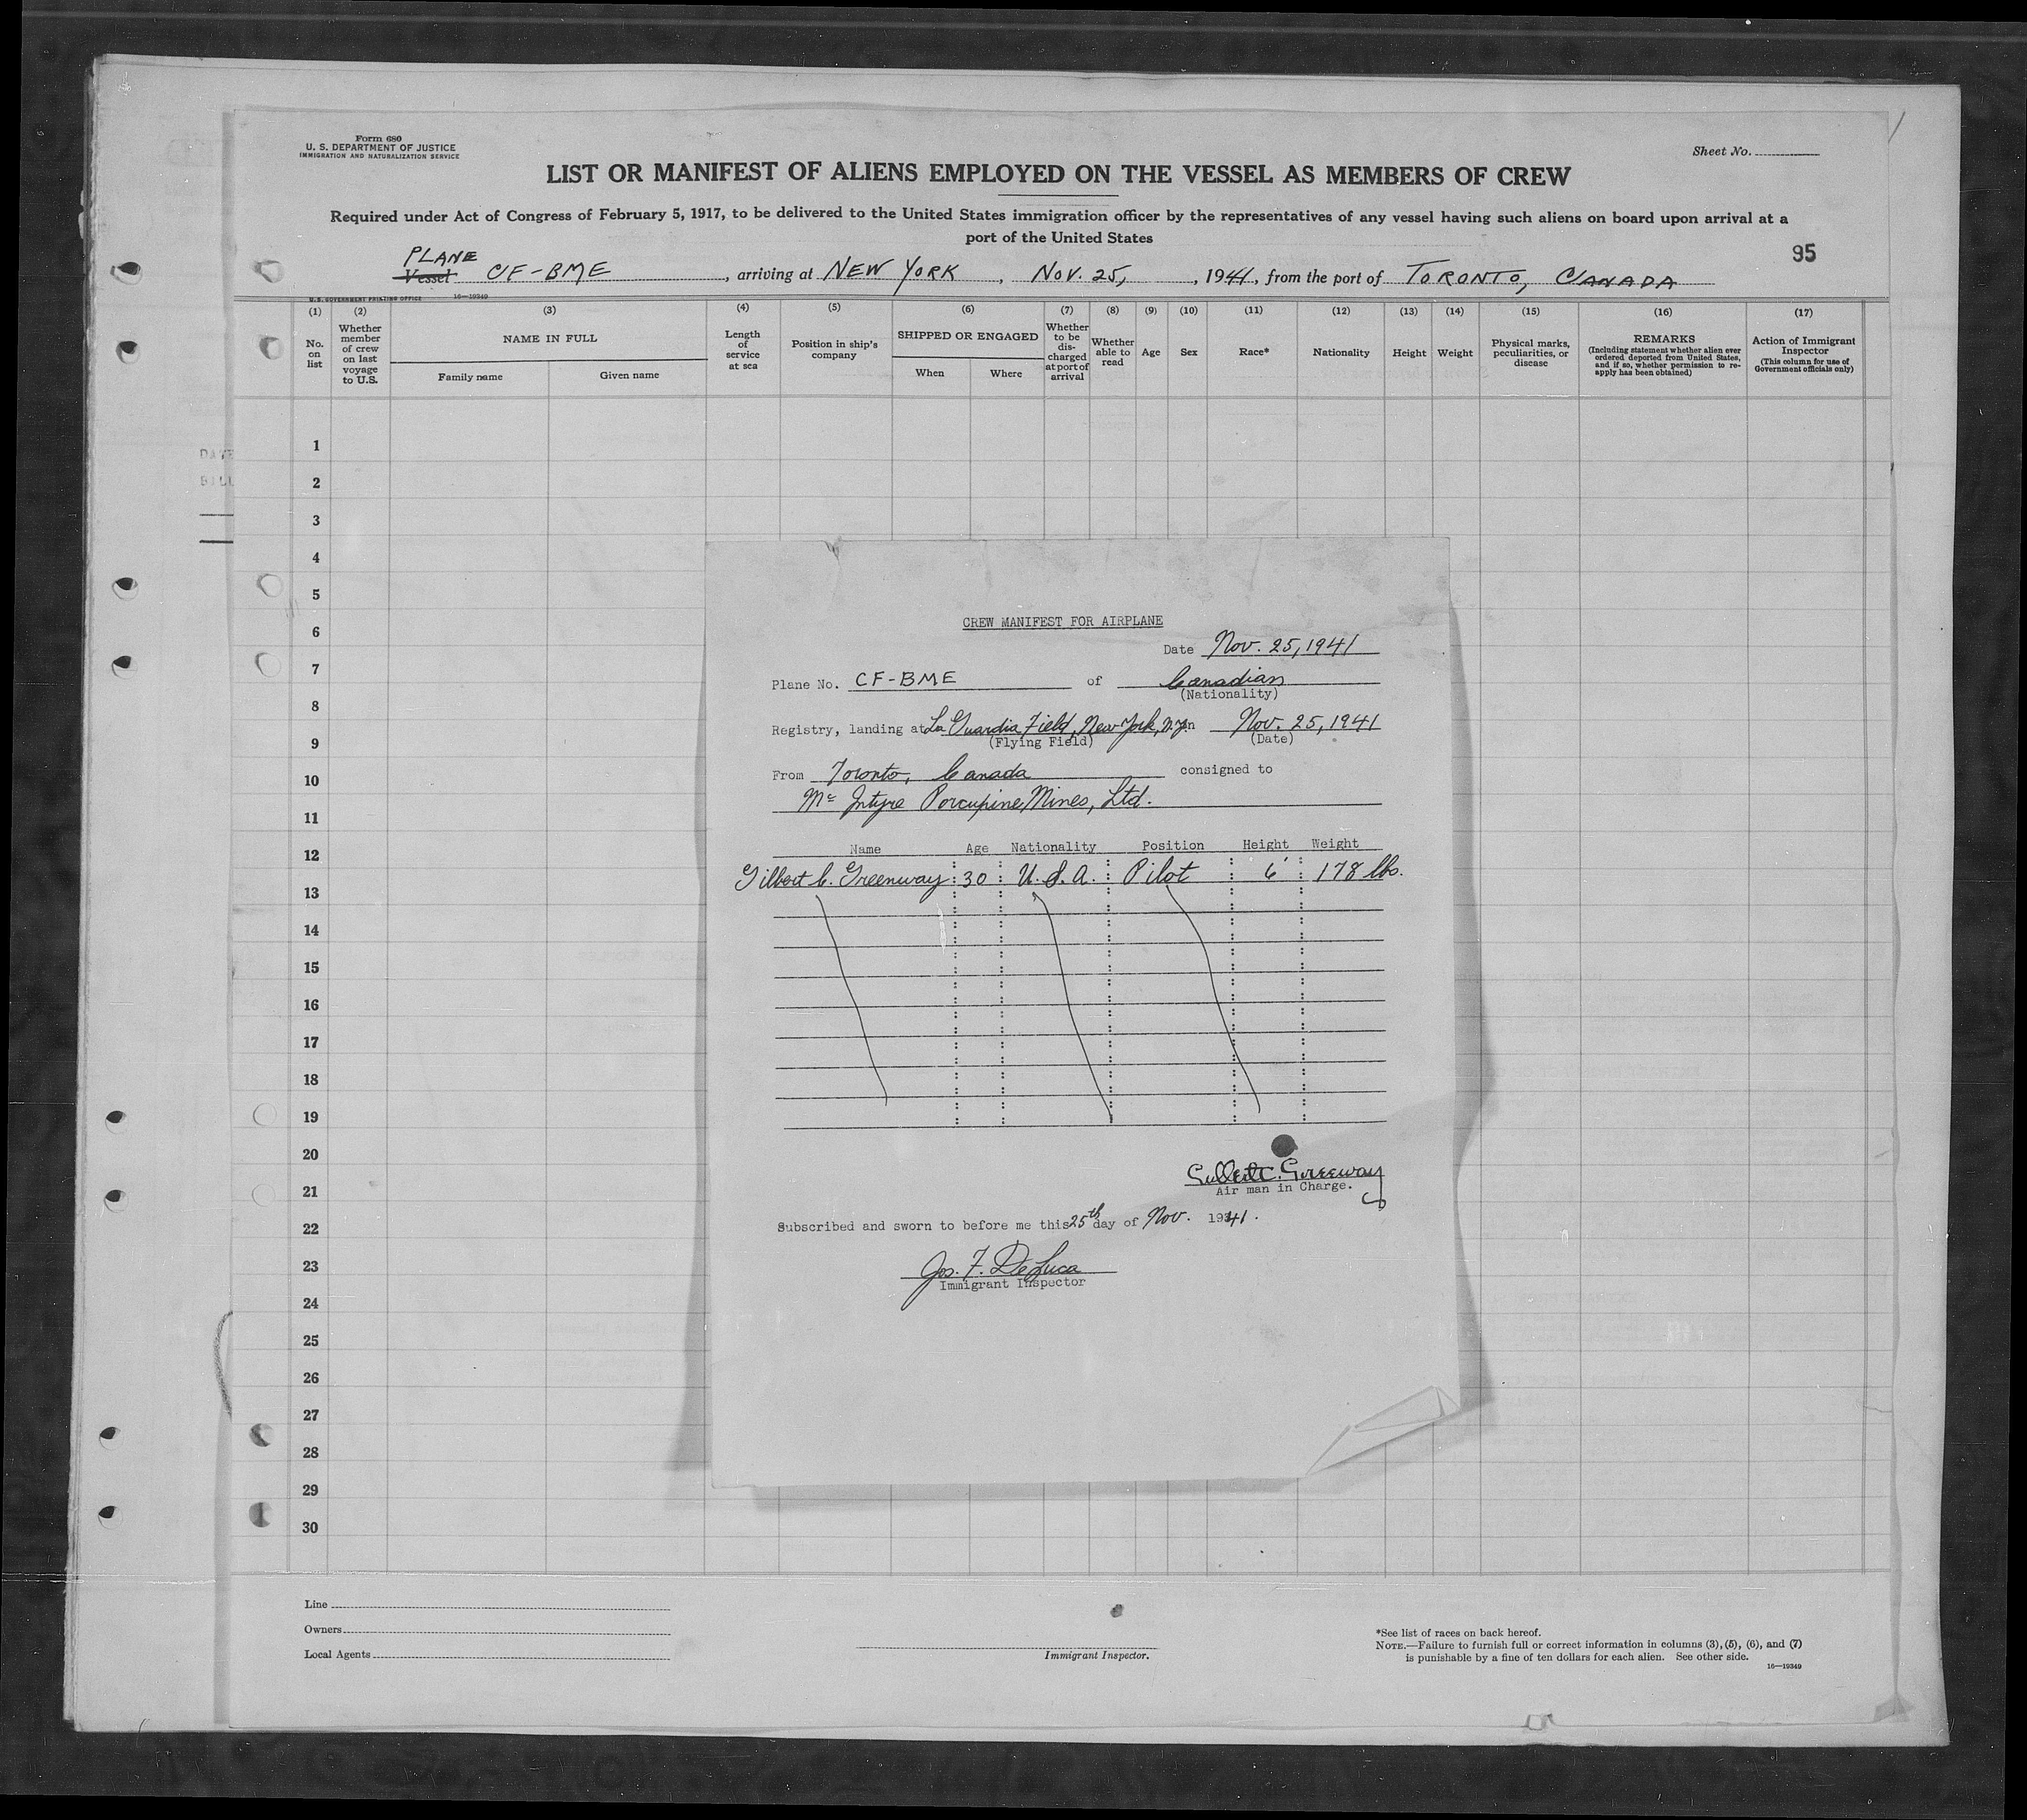 Form 680
U. S. DEPARTMENT OF JUSTICE
IMMIGRATION AND NATURALIZATION SERVICE
Sheet No.
LIST OR MANIFEST OF ALIENS EMPLOYED ON THE VESSEL AS MEMBERS OF CREW
Required under Act of Congress of February 5, 1917, to be delivered to the United States immigration officer by the representatives of any vessel having such aliens on board upon arrival at a
port of the United States
95
PLANE
Vessel CF-BME, arriving at NEW YORK, NOV. 25, 1941, from the port of TORONTO, CANADA
U.S. GOVERNMENT PRINTING OFFICE 16—19349
(1) (2) (3) (4) (5) (6) (7) (8) (9) (10) (11) (12) (13) (14) (15) (16) (17)
No. on list
Whether member of crew on last voyage to U.S.
NAME IN FULL
Family name
Given name
Length of service at sea
Position in ship's company
SHIPPED OR ENGAGED
When
Where
Whether to be discharged at port of arrival
Whether able to read
Age
Sex
Race*
Nationality
Height
Weight
Physical marks, peculiarities, or disease
REMARKS
(Including statement whether alien ever ordered deported from United States, and if so, whether permission to re-apply has been obtained)
Action of Immigrant Inspector
(This column for use of Government officials only)
DATE
1
2
3
4
5
6
7
8
9
10
11
12
13
14
15
16
17
18
19
20
21
22
23
24
25
26
27
28
29
30
CREW MANIFEST FOR AIRPLANE
Date Nov. 25, 1941
Plane No. CF-BME of Canadian
(Nationality)
Registry, landing at La Guardia Field, New York, N.Y. on Nov. 25, 1941
(Flying Field) (Date)
From Toronto, Canada consigned to
Mc Intyre Porcupine Mines, Ltd.
Name Age Nationality Position Height Weight
Gilbert C. Greenway 30 U.S.A. Pilot 6' 178 lbs.
Gilbert C. Greeway
Air man in Charge.
Subscribed and sworn to before me this 25th day of Nov. 1941.
Jos. F. DeLuca
Immigrant Inspector
Line
Owners
Local Agents
Immigrant Inspector.
*See list of races on back hereof.
NOTE.—Failure to furnish full or correct information in columns (3), (5), (6), and (7)
is punishable by a fine of ten dollars for each alien. See other side.
16—19349